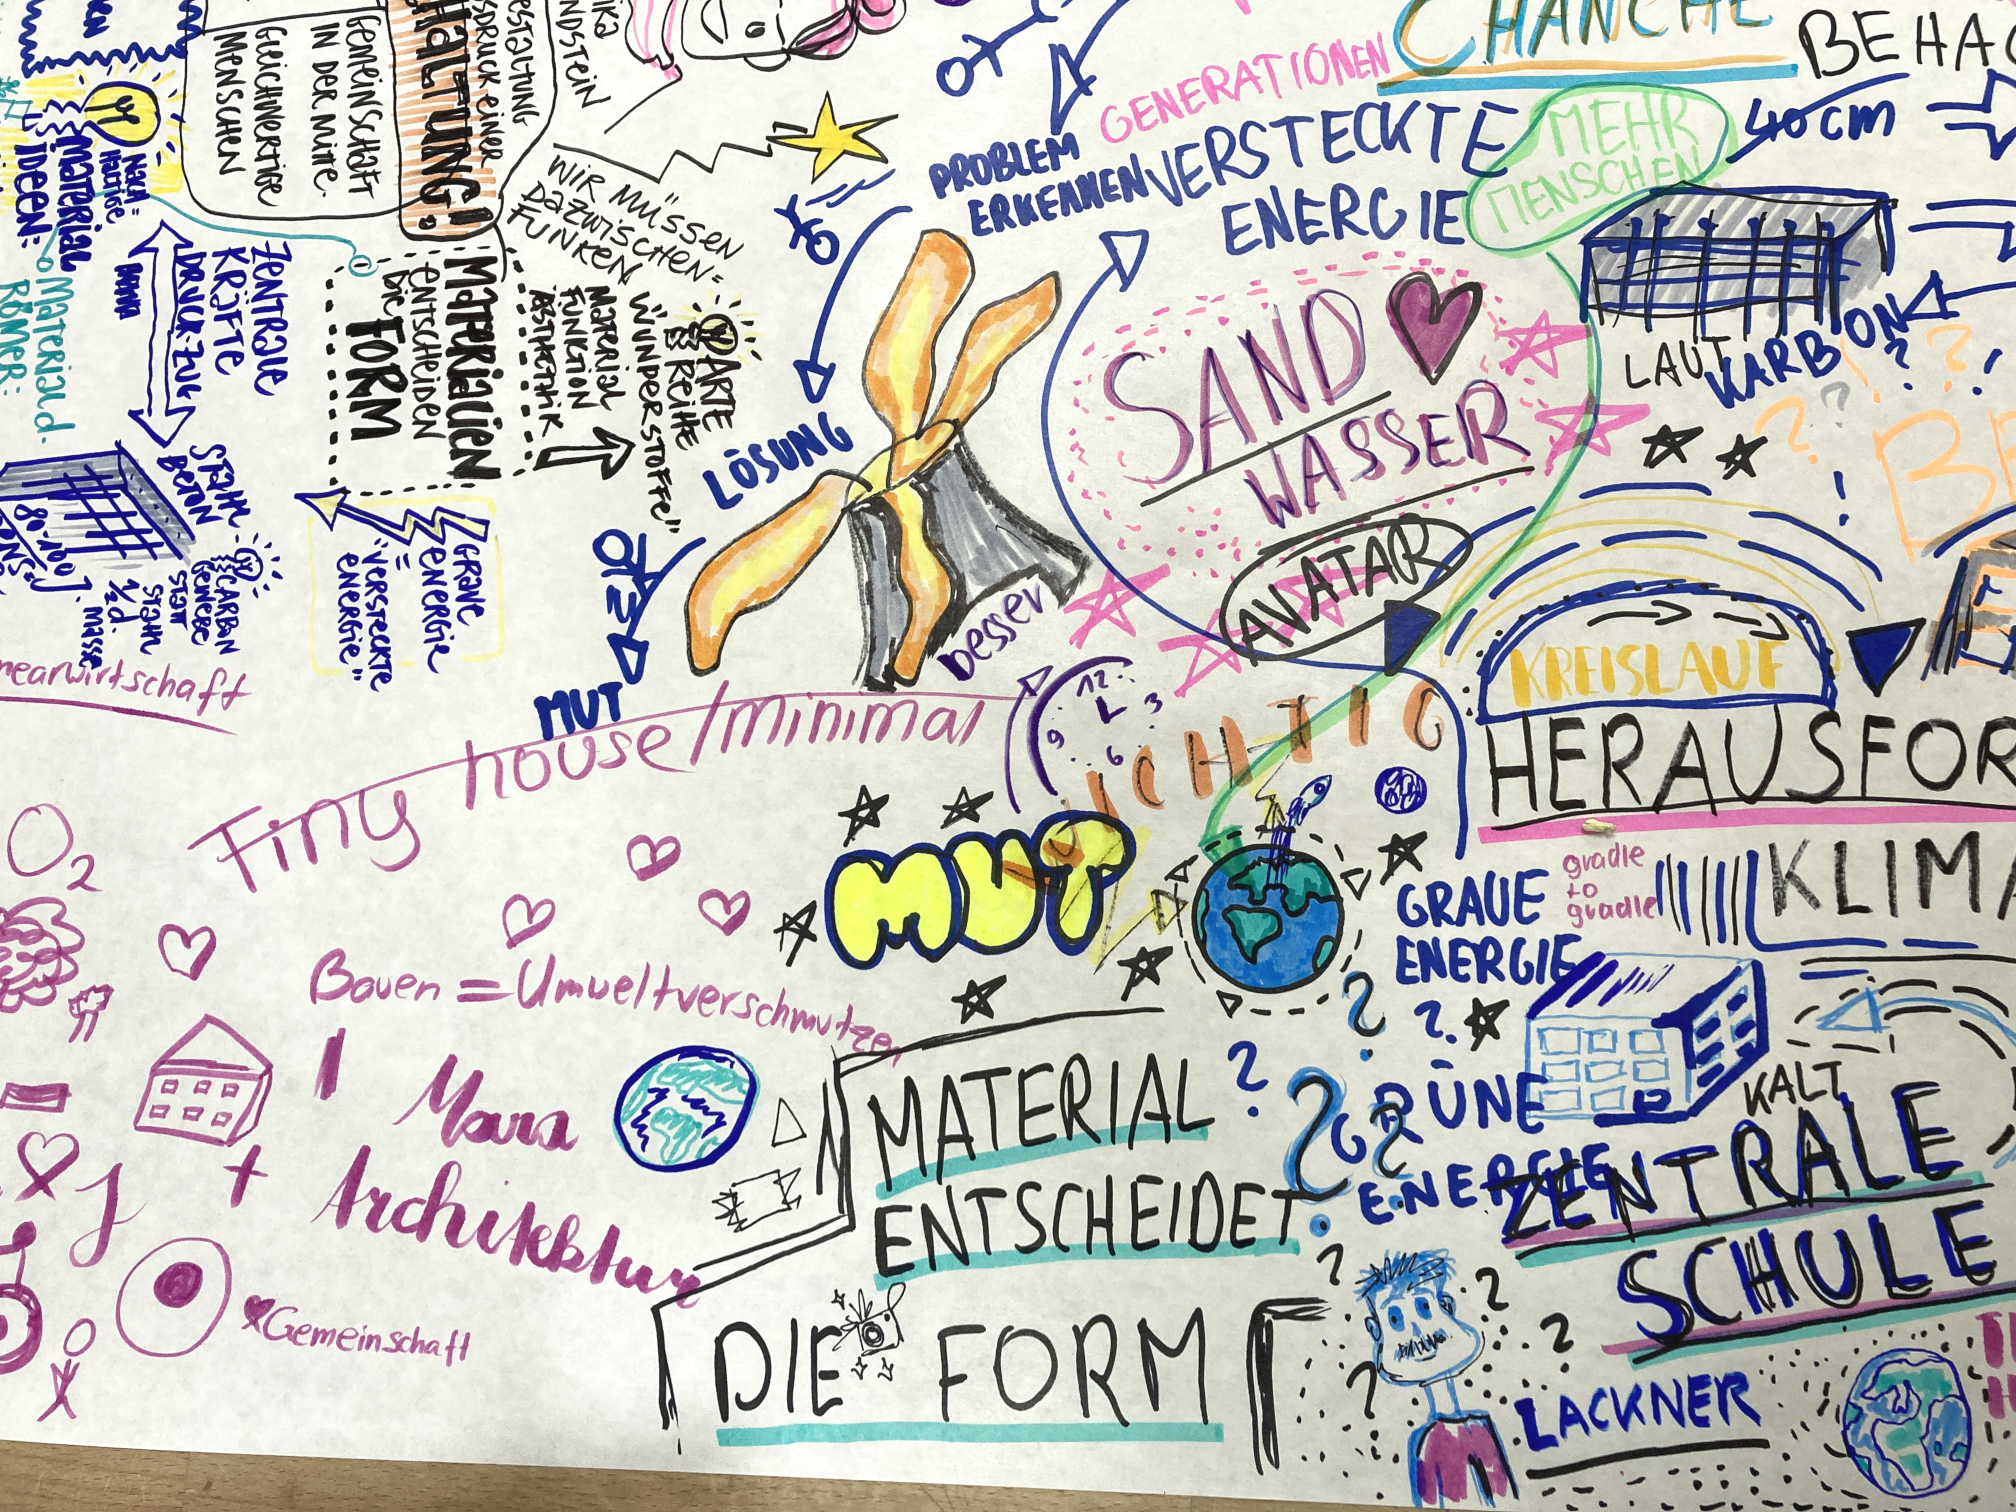 HALTUNG!
GEMEINSCHAFT
IN DER MITTE.
GLEICHWERTIGE
MENSCHEN
MATERIAL
IDEEN:
ZENTRALE
KRÄFTE
DRUCK-ZUG
MATERIALIEN
ENTSCHEIDEN
DIE FORM
WIR MÜSSEN
DAZWISCHEN=
FUNKEN
MATERIAL
FUNKTION
ÄSTHETIK
ARTE
REIHE
"WUNDERSTOFFE"
STAHL-
BETON
CARBON
STATT
STAHL
1/2 d.
MASSE
80-100J
GRAUE
ENERGIE
=
"VERSTECKTE
ENERGIE"
MATERIAL d.
RÖMER:
nearwirtschaft
GENERATIONEN
CHANCHE
BEHAG
PROBLEM
ERKENNEN
VERSTECKTE
ENERGIE
MEHR
MENSCHEN
40 cm
LÖSUNG
MUT
SAND
WASSER
AVATAR
besser
LAUT
KARBON
??!
KREISLAUF
HERAUSFOR
KLIMA
gradle
to
gradle
Tiny house/minimal
12
3
6
9
ICHTIG
MUT
GRAUE
ENERGIE
GRÜNE
ENERGIE
KALT
ZENTRALE
SCHULE
LACKNER
O2
Bauen = Umweltverschmutze
Mara
Architektur
Gemeinschaft
MATERIAL
ENTSCHEIDET
DIE FORM